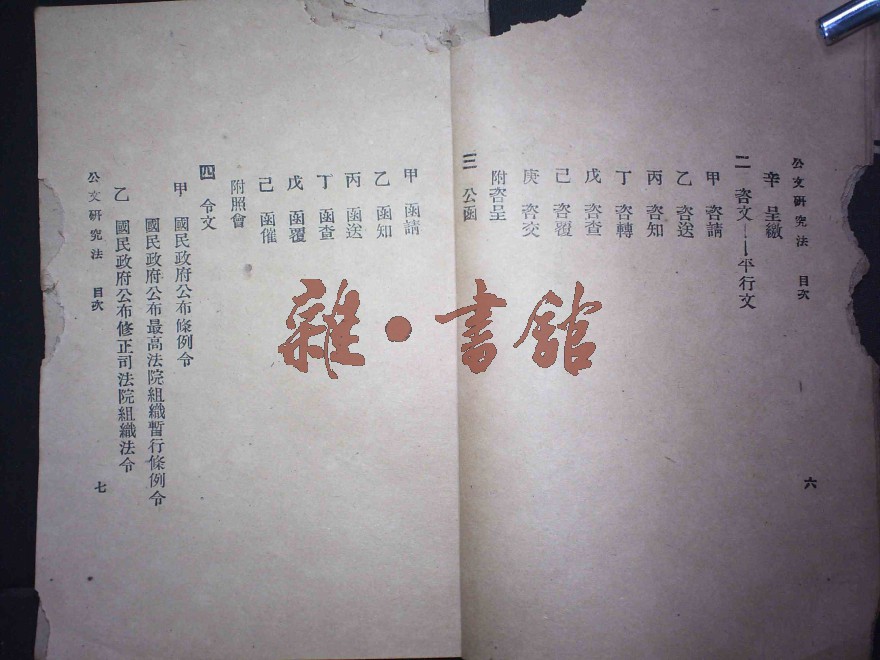 公文研究法　目次
六
辛　呈繳
二　咨文——平行文
甲　咨請
乙　咨送
丙　咨知
丁　咨轉
戊　咨查
己　咨覆
庚　咨交
附咨呈
三　公函
甲　函請
乙　函知
丙　函送
丁　函查
戊　函覆
己　函催
附照會
四　令文
甲　國民政府公布條例令
國民政府公布最高法院組織暫行條例令
乙　國民政府公布修正司法院組織法令
公文研究法　目次
七
雜·書館